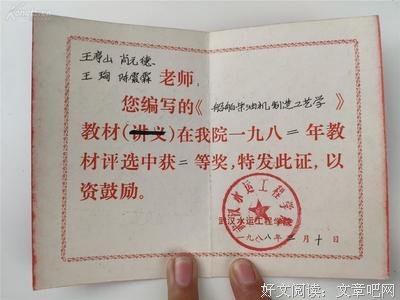 王孝山 肖元德
王珣 陈震霖 老师,
您编写的《船舶柴油机制造工艺学》
教材(讲义)在我院一九八二年教
材评选中获二等奖,特发此证,以
资鼓励。
武汉水运工程学院
武汉水运工程学院
一九八八年一月十日
好文阅读:文章吧网